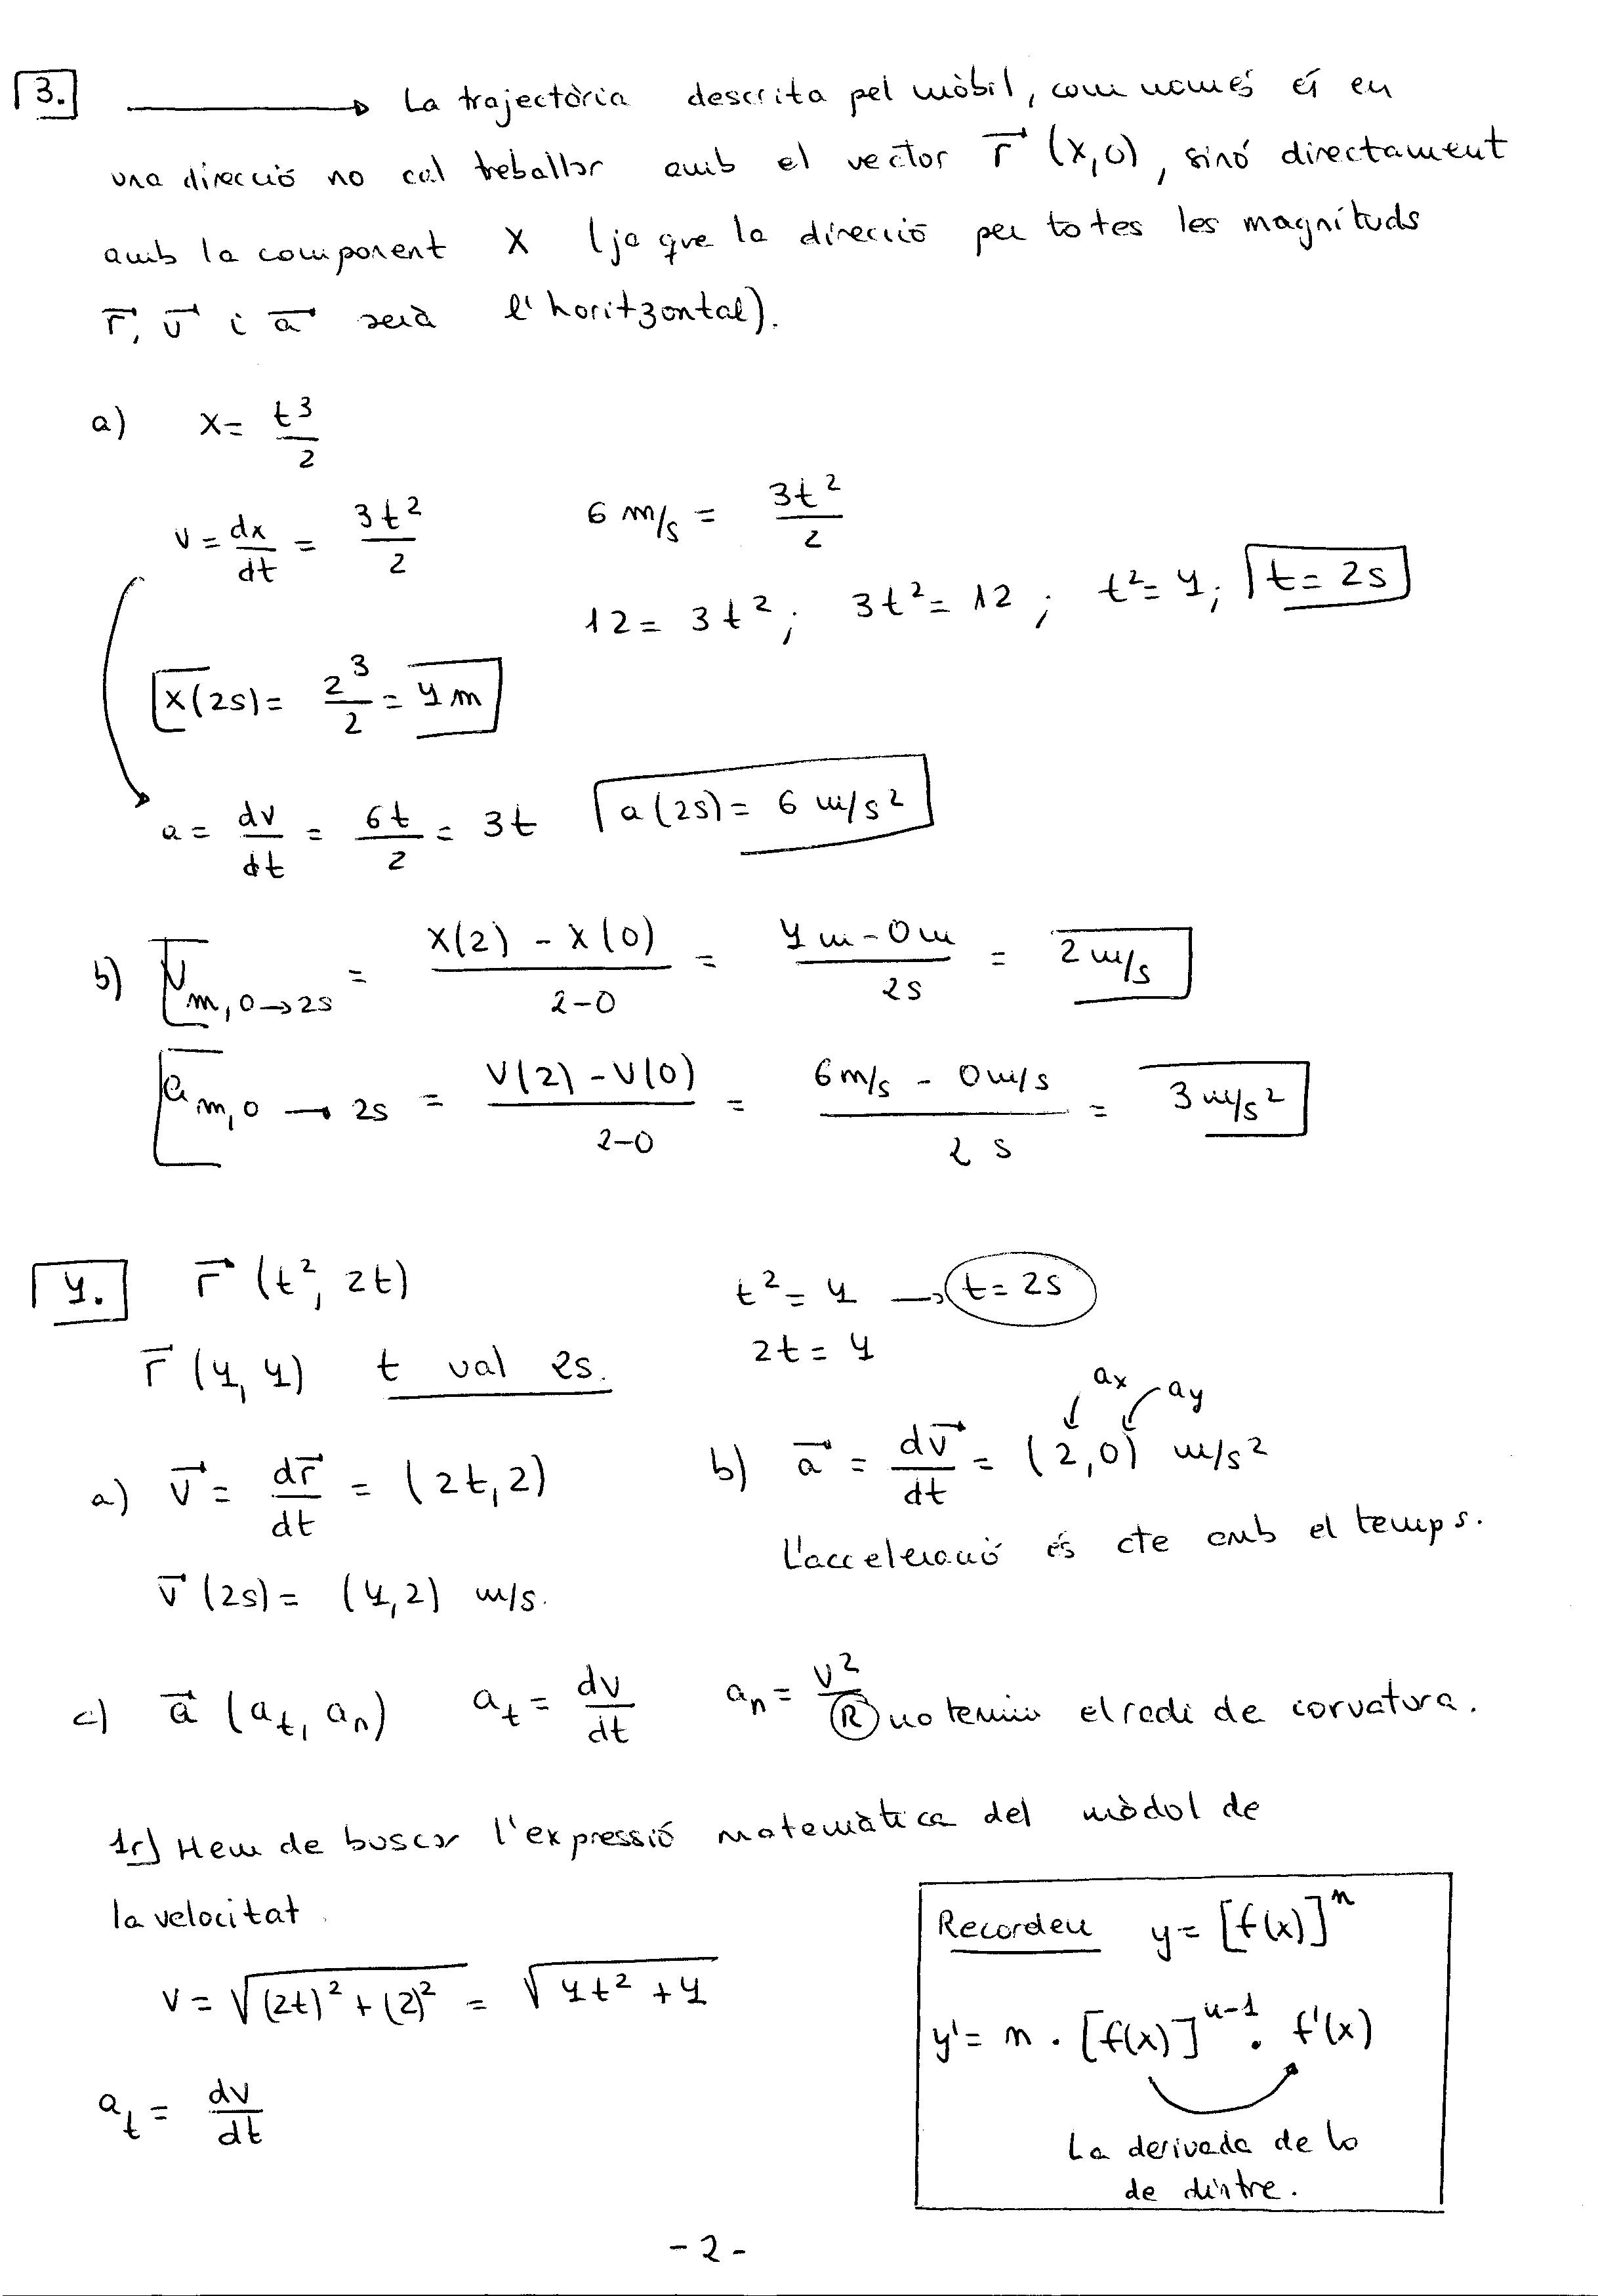 3. → La trajectòria descrita pel mòbil, com només és en
una direcció no cal treballar amb el vector r⃗ (x,0), sinó directament
amb la component X (ja que la direcció per totes les magnituds
r⃗, v⃗ i a⃗ serà l'horitzontal).
a) x = t³/2
v = dx/dt = 3t²/2 6 m/s = 3t²/2
12 = 3t²; 3t² = 12; t² = 4; t = 2s
x(2s) = 2³/2 = 4 m
a = dv/dt = 6t/2 = 3t a(2s) = 6 m/s²
b) v m, 0→2s = x(2) - x(0) / 2-0 = 4m - 0m / 2s = 2 m/s
a m, 0→2s = v(2) - v(0) / 2-0 = 6m/s - 0m/s / 2 s = 3 m/s²
4. r⃗ (t², 2t) t² = 4 → t = 2s
r⃗ (4, 4) t val 2s. 2t = 4
ax ay
a) v⃗ = dr⃗/dt = (2t, 2) b) a⃗ = dv⃗/dt = (2,0) m/s²
L'acceleració és cte amb el temps.
v⃗ (2s) = (4,2) m/s.
c) a⃗ (at, an) at = dv/dt an = v²/R no tenim el radi de corvatura.
1r) Hem de buscar l'expressió matemàtica del mòdul de
la velocitat.
v = √(2t)² + (2)² = √4t² + 4
at = dv/dt
Recordeu y = [f(x)]ⁿ
y' = n · [f(x)]ⁿ⁻¹ · f'(x)
La derivada de lo
de dintre.
- 2 -